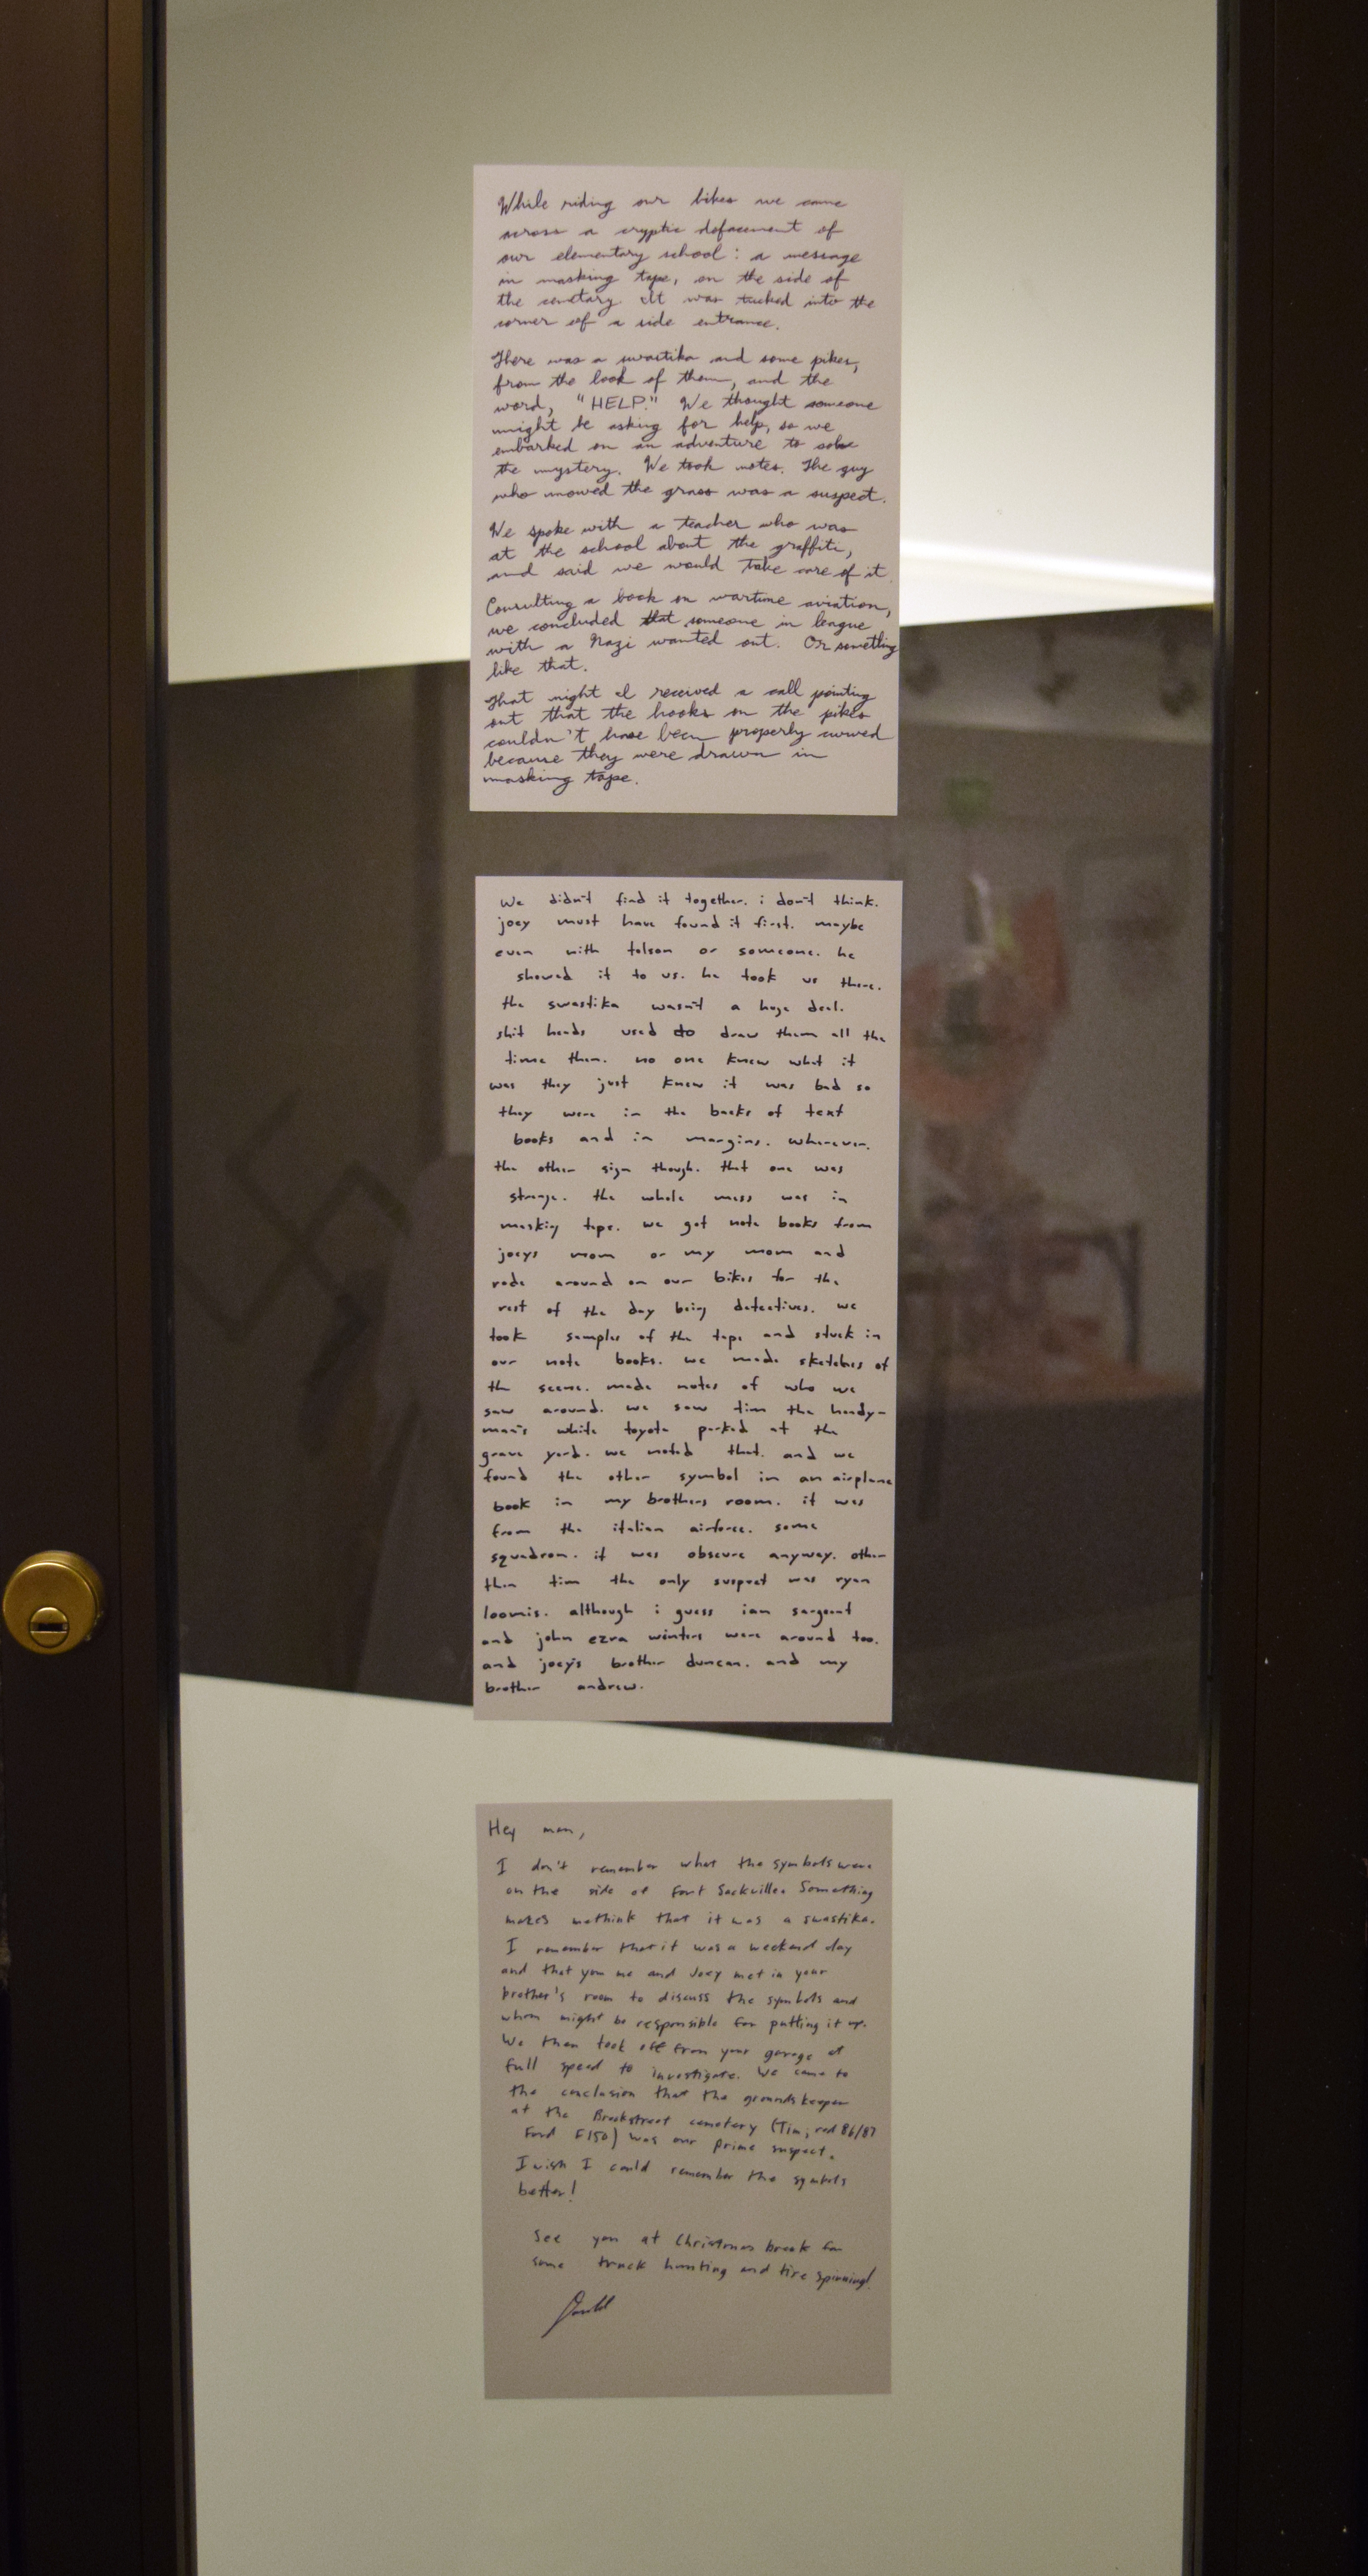 While riding our bikes we came
across a cryptic defacement of
our elementary school: a message
in masking tape, on the side of
the cemetary. It was tucked into the
corner of a side entrance.
There was a swastika and some pikes,
from the look of them, and the
word, "HELP." We thought someone
might be asking for help, so we
embarked on an adventure to solve
the mystery. We took notes. The guy
who mowed the grass was a suspect.
We spoke with a teacher who was
at the school about the graffiti,
and said we would take care of it.
Consulting a book on wartime aviation,
we concluded that someone in league
with a Nazi wanted out. Or something
like that.
That night I received a call pointing
out that the hooks on the pikes
couldn't have been properly curved
because they were drawn in
masking tape.
We didn't find it together. i don't think.
joey must have found it first. maybe
even with tolson or someone. he
showed it to us. he took us there.
the swastika wasn't a huge deal.
shit heads used to draw them all the
time then. no one knew what it
was they just knew it was bad so
they were in the backs of text
books and in margins. wherever.
the other sign though. that one was
strange. the whole mess was in
masking tape. we got note books from
joeys mom or my mom and
rode around on our bikes for the
rest of the day being detectives. we
took samples of the tape and stuck in
our note books. we made sketches of
the scene. made notes of who we
saw around. we saw tim the handy-
man's white toyota parked at the
grave yard. we noted that. and we
found the other symbol in an airplane
book in my brothers room. it was
from the italian airforce. some
squadron. it was obscure anyway. other
than tim the only suspect was ryan
loomis. although i guess ian sargeant
and john ezra winters were around too.
and joey's brother duncan. and my
brother andrew.
Hey man,
I don't remember what the symbols were
on the side of Fort Sackville. Something
makes me think that it was a swastika.
I remember that it was a weekend day
and that you me and Joey met in your
brother's room to discuss the symbols and
whom might be responsible for putting it up.
We then took off from your garage at
full speed to investigate. We came to
the conclusion that the groundskeeper
at the Brookstreet cemetery (Tim, red 86/87
Ford F150) was our prime suspect.
I wish I could remember the symbols
better!
See you at Christmas break for
some truck hunting and tire spinning!